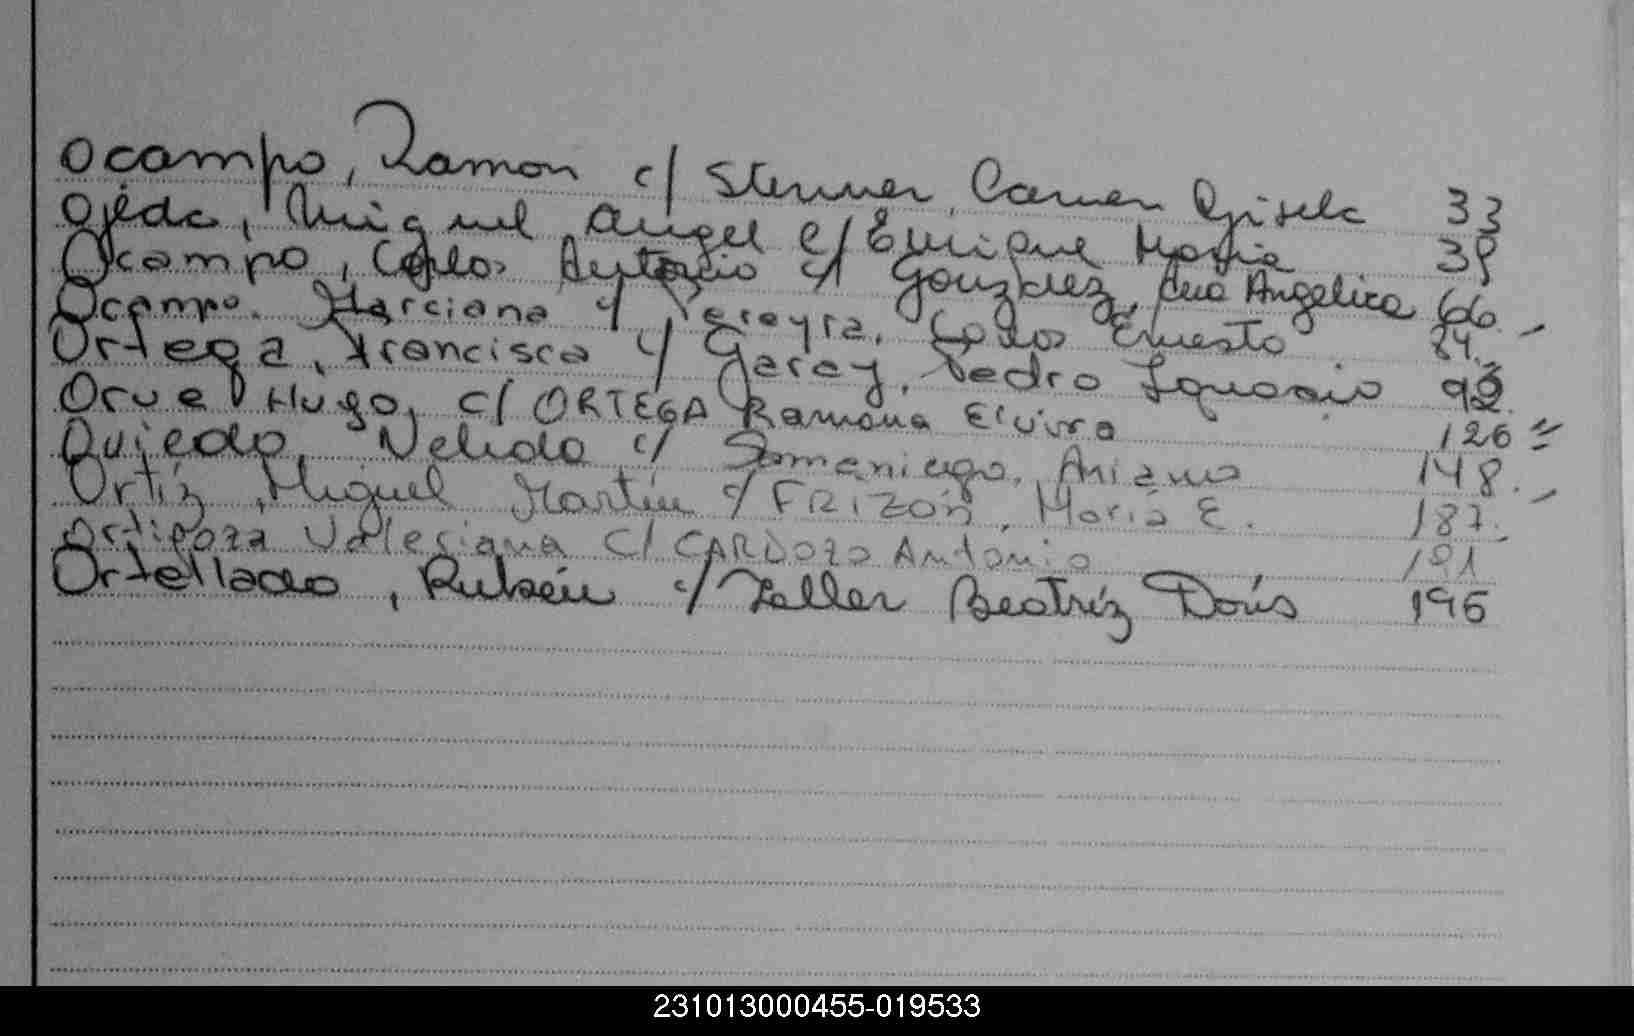 Ocampo, Ramon c/ Stenner, Carmen Gisela 33
Ojeda, Miguel Angel c/ Enrique Maria 39
Ocampo, Carlos Antonio c/ González, Ana Angelica 66
Ocampo. Marciana c/ Pereyra, Carlos Ernesto 84
Ortega, Francisca c/ Garay, Pedro Ignacio 92
Orue Hugo, c/ ORTEGA Ramona Elvira 126
Oviedo, Nelida c/ Samaniego, Ariano 148
Ortiz, Miguel Martín c/ FRIZON, María E. 187
Ortigoza Valeriana c/ CARDOZO Antonio 191
Ortellado, Rubén c/ Zeller Beatríz Dorís 196
231013000455-019533